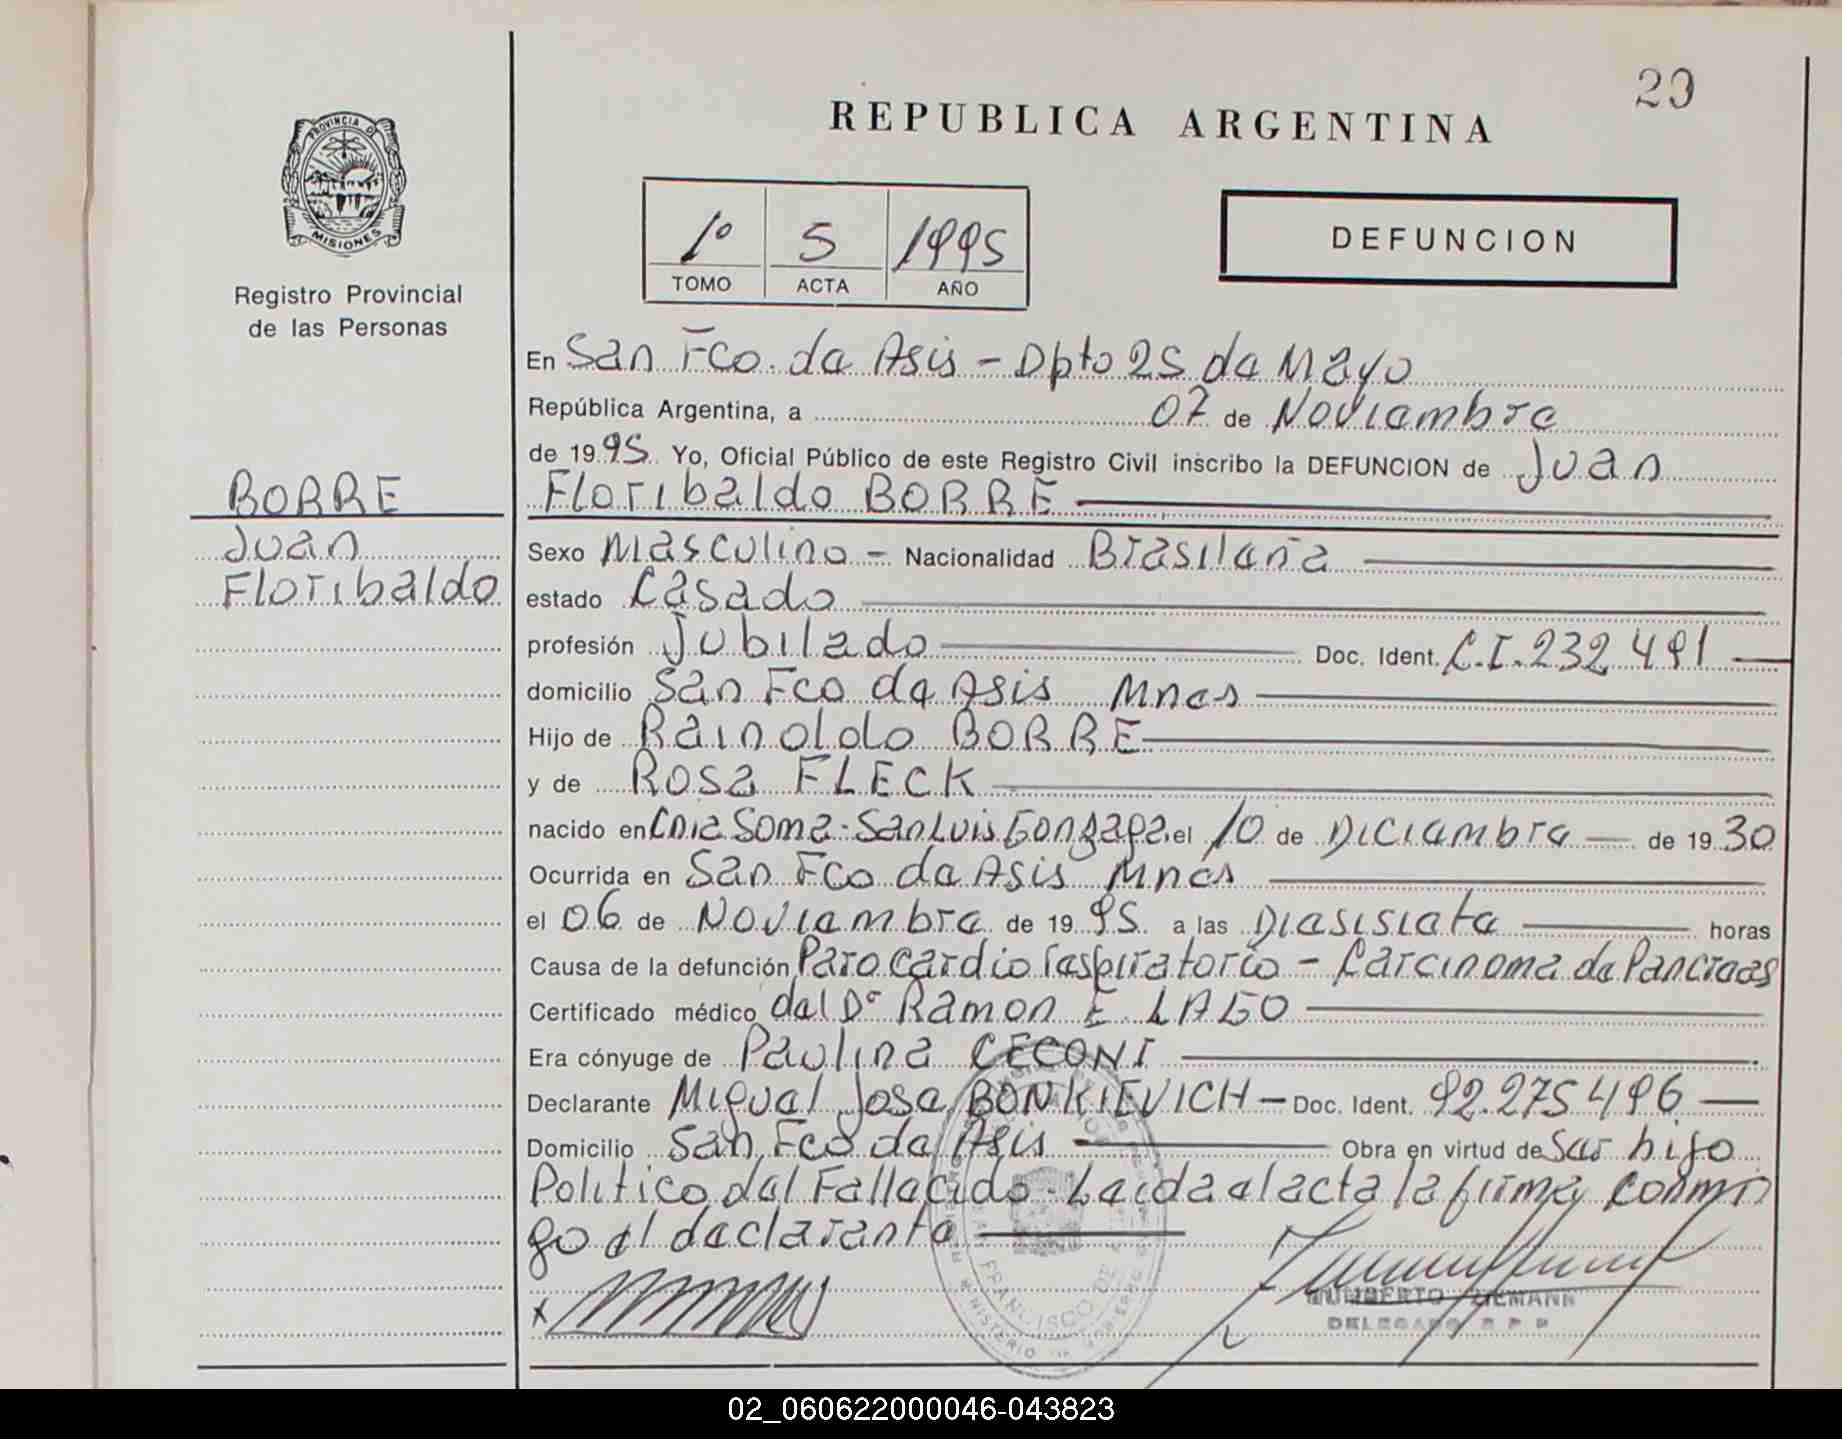 23
REPUBLICA ARGENTINA
PROVINCIA DE
MISIONES
Registro Provincial
de las Personas
1º 5 1995
TOMO ACTA AÑO
DEFUNCION
BORRE
Juan
Floribaldo
En San Fco. de Asis - Dpto 25 de Mayo
República Argentina, a 07 de Noviembre
de 1995 Yo, Oficial Público de este Registro Civil inscribo la DEFUNCION de Juan
Floribaldo BORRE
Sexo Masculino - Nacionalidad Brasileña
estado Casado
profesión Jubilado Doc. Ident. C.I. 232 491
domicilio San Fco de Asis Mnes
Hijo de Rainoldo BORRE
y de Rosa FLECK
nacido en Cnia Soma - San Luis Gonzaga el 10 de Diciembre de 1930
Ocurrida en San Fco de Asis Mnes
el 06 de Noviembre de 1995 a las Diesisiete horas
Causa de la defunción Paro cardio respiratorio - Carcinoma de Pancreas
Certificado médico del Dr Ramon E. LAGO
Era cónyuge de Paulina CECONI
Declarante Miguel Jose BONKIEVICH - Doc. Ident. 92.275 496
Domicilio San Fco de Asis Obra en virtud de Ser hijo
Politico del Fallecido. Leida el acta la firma conmi
go el declarante
x
FRANCISCO DE
MINISTERIO DE GOBIERNO
HUMBERTO ZIEMANN
DELEGADO R P P
02_060622000046-043823